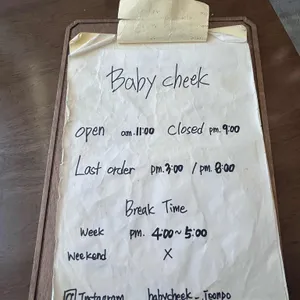 Baby cheek
open am. 11:00 closed pm. 9:00
Last order pm. 7:00 / pm. 8:00
Break Time
week pm. 4:00 ~ 5:00
weekend X
Instagram babycheek_Jeonpo